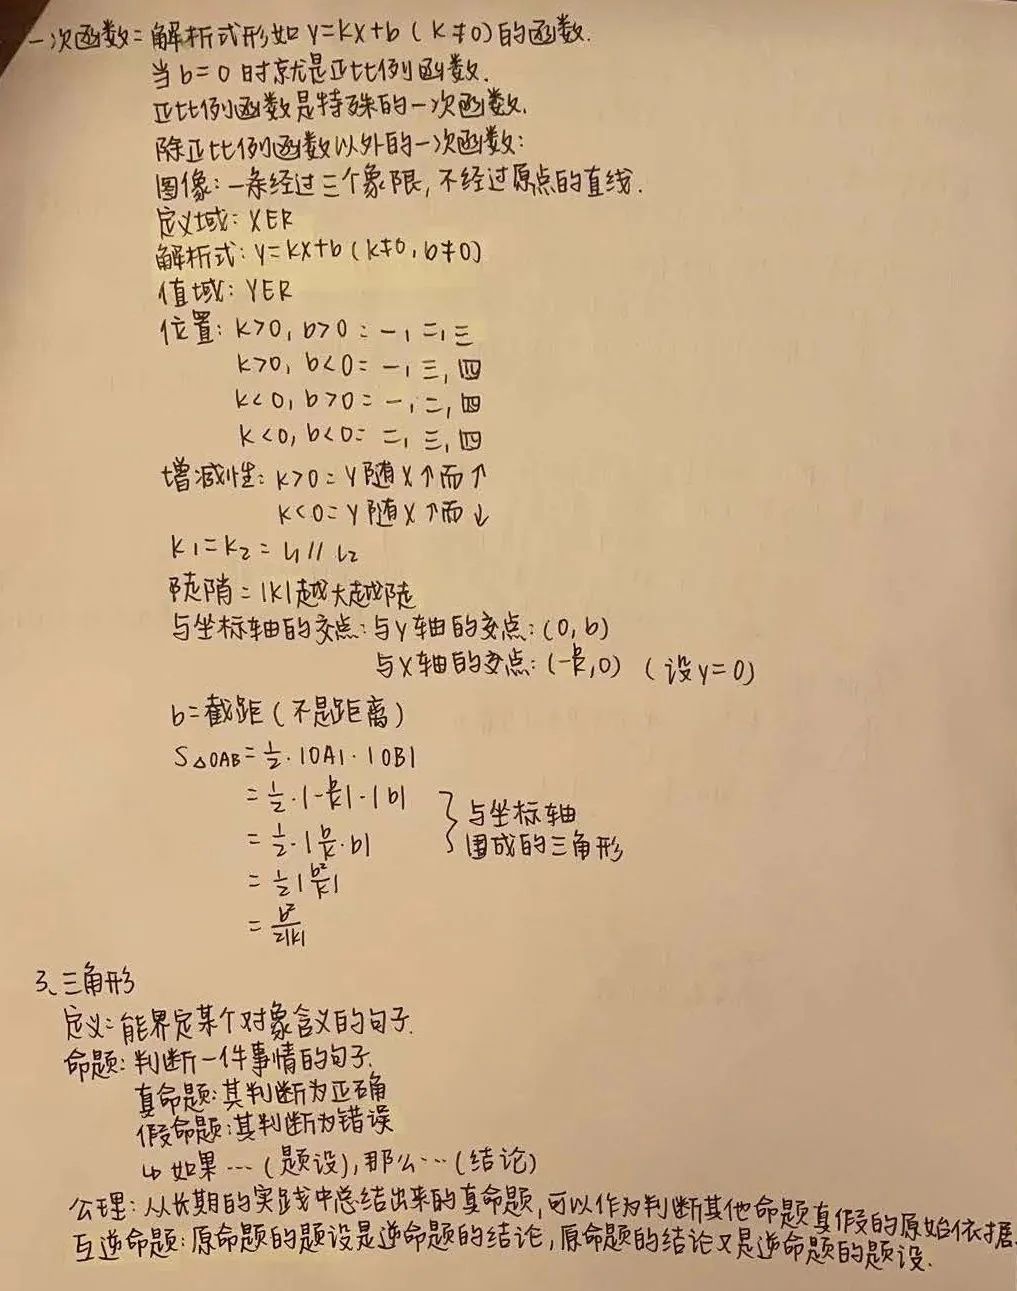 一次函数:解析式形如 y=kx+b (k≠0)的函数.
当b=0时就是正比例函数.
正比例函数是特殊的一次函数.
除正比例函数以外的一次函数:
图像:一条经过三个象限,不经过原点的直线.
定义域:X∈R
解析式:y=kx+b(k≠0,b≠0)
值域:Y∈R
位置:k>0,b>0:一,二,三
k>0,b<0:一,三,四
k<0,b>0:一,二,四
k<0,b<0:二,三,四
增减性:k>0:y随x↑而↑
k<0:y随x↑而↓
k₁=k₂:l₁∥l₂
陡峭:|k|越大越陡
与坐标轴的交点:与y轴的交点:(0,b)
与x轴的交点:(-b/k,0)(设y=0)
b=截距(不是距离)
S△OAB=1/2·|OA|·|OB|
=1/2·|-b/k|·|b|
=1/2·|b/k·b|
=1/2|b²/k|
=b²/2|k|
}与坐标轴
围成的三角形
3、三角形
定义:能界定某个对象含义的句子.
命题:判断一件事情的句子.
真命题:其判断为正确
假命题:其判断为错误
↳如果…(题设),那么…(结论)
公理:从长期的实践中总结出来的真命题,可以作为判断其他命题真假的原始依据.
互逆命题:原命题的题设是逆命题的结论,原命题的结论又是逆命题的题设.